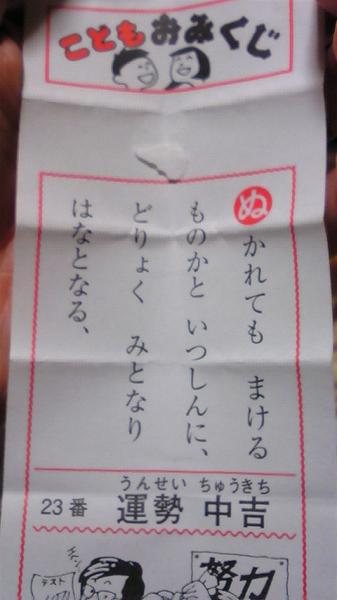 こどもおみくじ
ぬかれても まける
ものかと いつしんに、
どりょく みとなり
はなとなる、
うんせい ちゅうきち
23番 運勢 中吉
テスト
努力